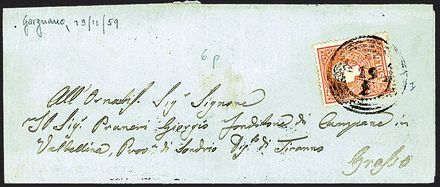 Gargnano, 29/11/59
6 p
All' Ornatiss. Sig. Signore
Il Sig. Pruneri Giorgio Fonditore di Campane in
Valtellina, Prov. di Sondrio Dis. di Tirano
Grosio